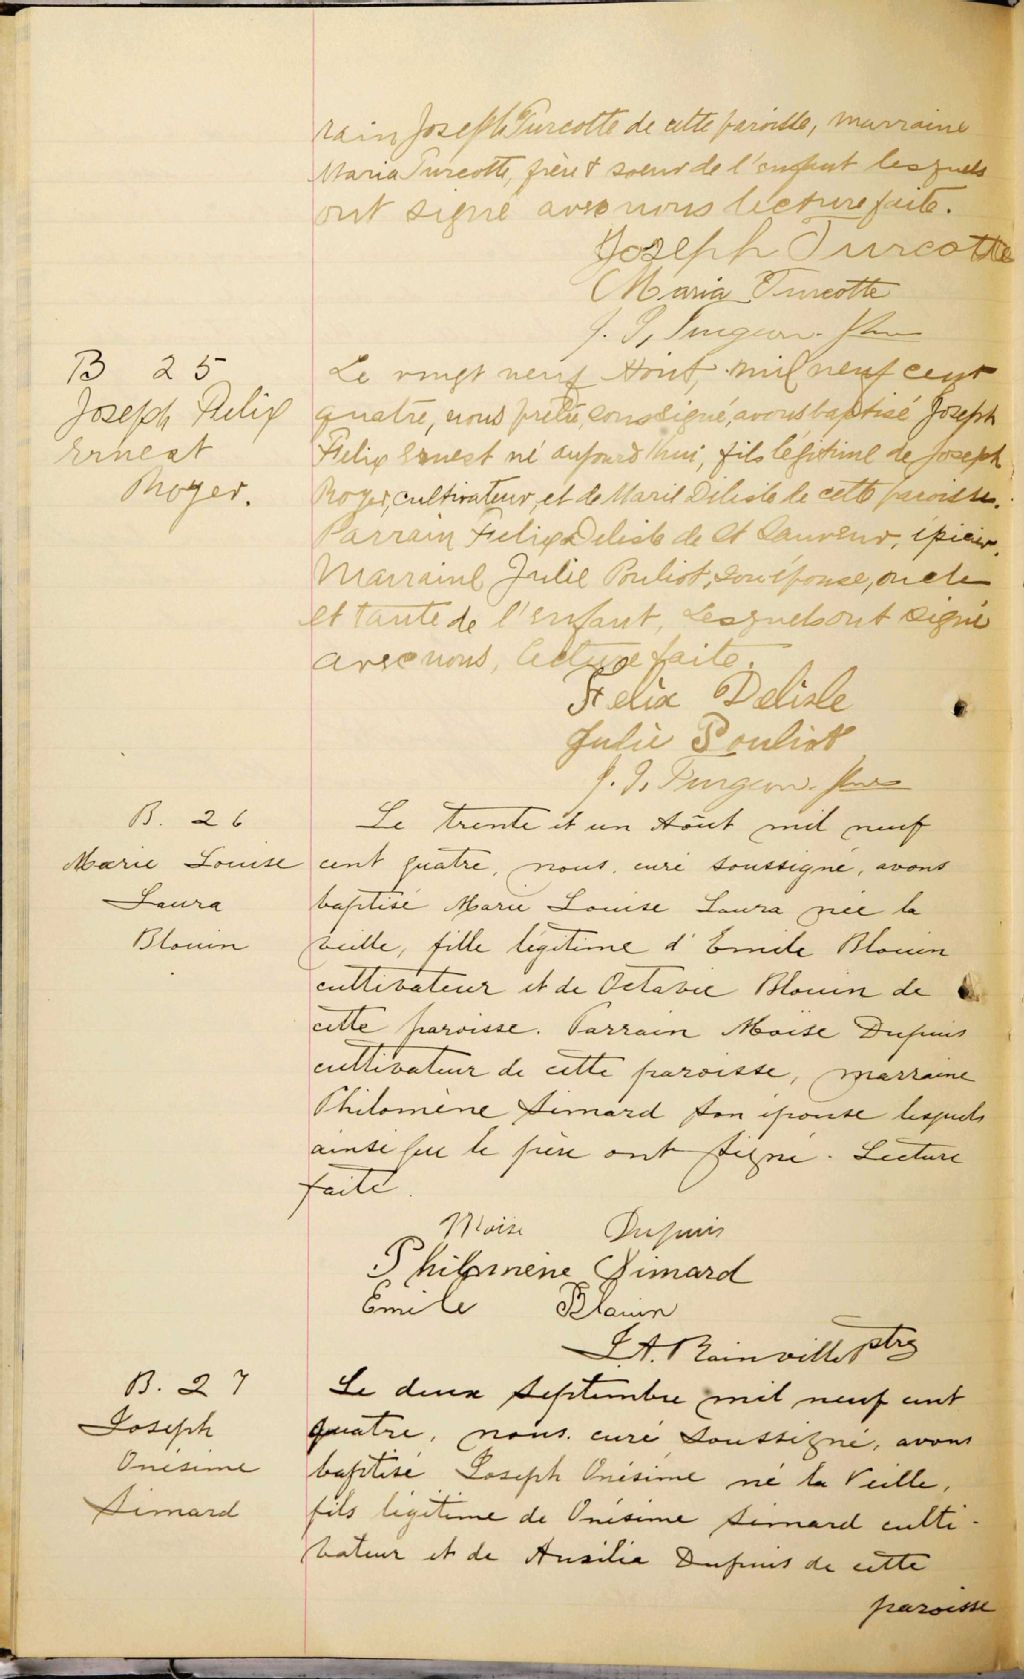 rain Joseph Turcotte de cette paroisse, marraine
Maria Turcotte, frère & soeur de l'enfant lesquels
ont signé avec nous lecture faite.
Joseph Turcotte
Maria Turcotte
J. J. Turgeon Ptre
B 25
Joseph Felix
Ernest
Royer.
Le vingt neuf Août, mil neuf cent
quatre, nous prêtre, soussigné, avons baptisé Joseph
Felix Ernest né aujourd'hui, fils légitime de Joseph
Royer, cultivateur, et de Marie Delisle de cette paroisse.
Parrain Felix Delisle de St Sauveur, épicier,
Marraine Julie Pouliot, son épouse, oncle
et tante de l'enfant, Lesquels ont signé
avec nous, lecture faite.
Felix Delisle
Julie Pouliot
J. J. Turgeon Ptre
B. 26
Marie Louise
Laura
Blouin
Le trente et un Août mil neuf
cent quatre, nous, curé soussigné, avons
baptisé Marie Louise Laura née la
veille, fille légitime d'Emile Blouin
cultivateur et de Octavie Blouin de
cette paroisse. Parrain Moïse Dupuis
cultivateur de cette paroisse, marraine
Philomène Simard son épouse lesquels
ainsi que le père ont signé. Lecture
faite.
Moïse Dupuis
Philomène Simard
Emile Blouin
J. A. Rainville ptre
B. 27
Joseph
Onésime
Simard
Le deux septembre mil neuf cent
quatre, nous, curé soussigné, avons
baptisé Joseph Onésime né la veille,
fils légitime de Onésime Simard culti-
vateur et de Ausilia Dupuis de cette
paroisse